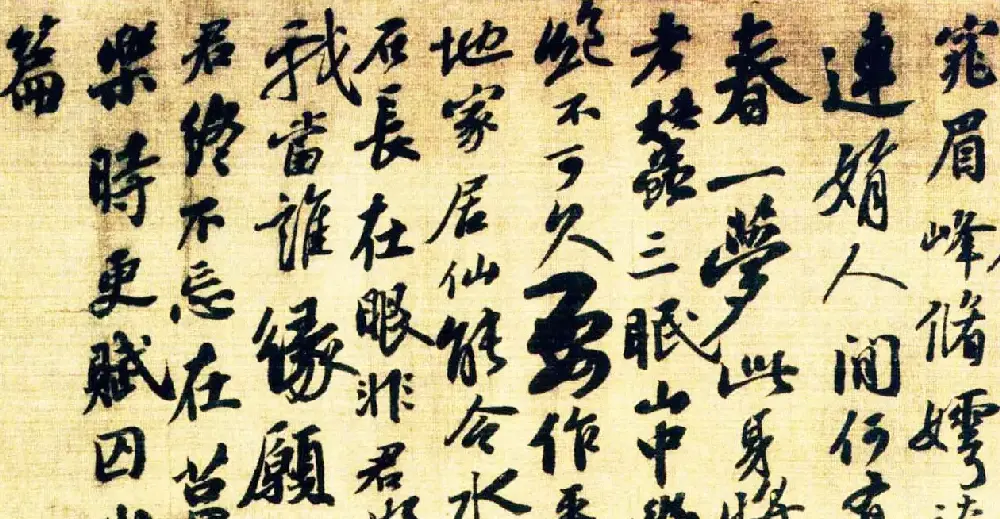 窕眉峰脩嫮清
連娟人間何有
春一夢此身將
老蠶三眠山中
絕不可久要作平
地家居仙能令水
石長在眼非君好
我當誰緣願
君終不忘在莒
樂時更賦囚山
篇